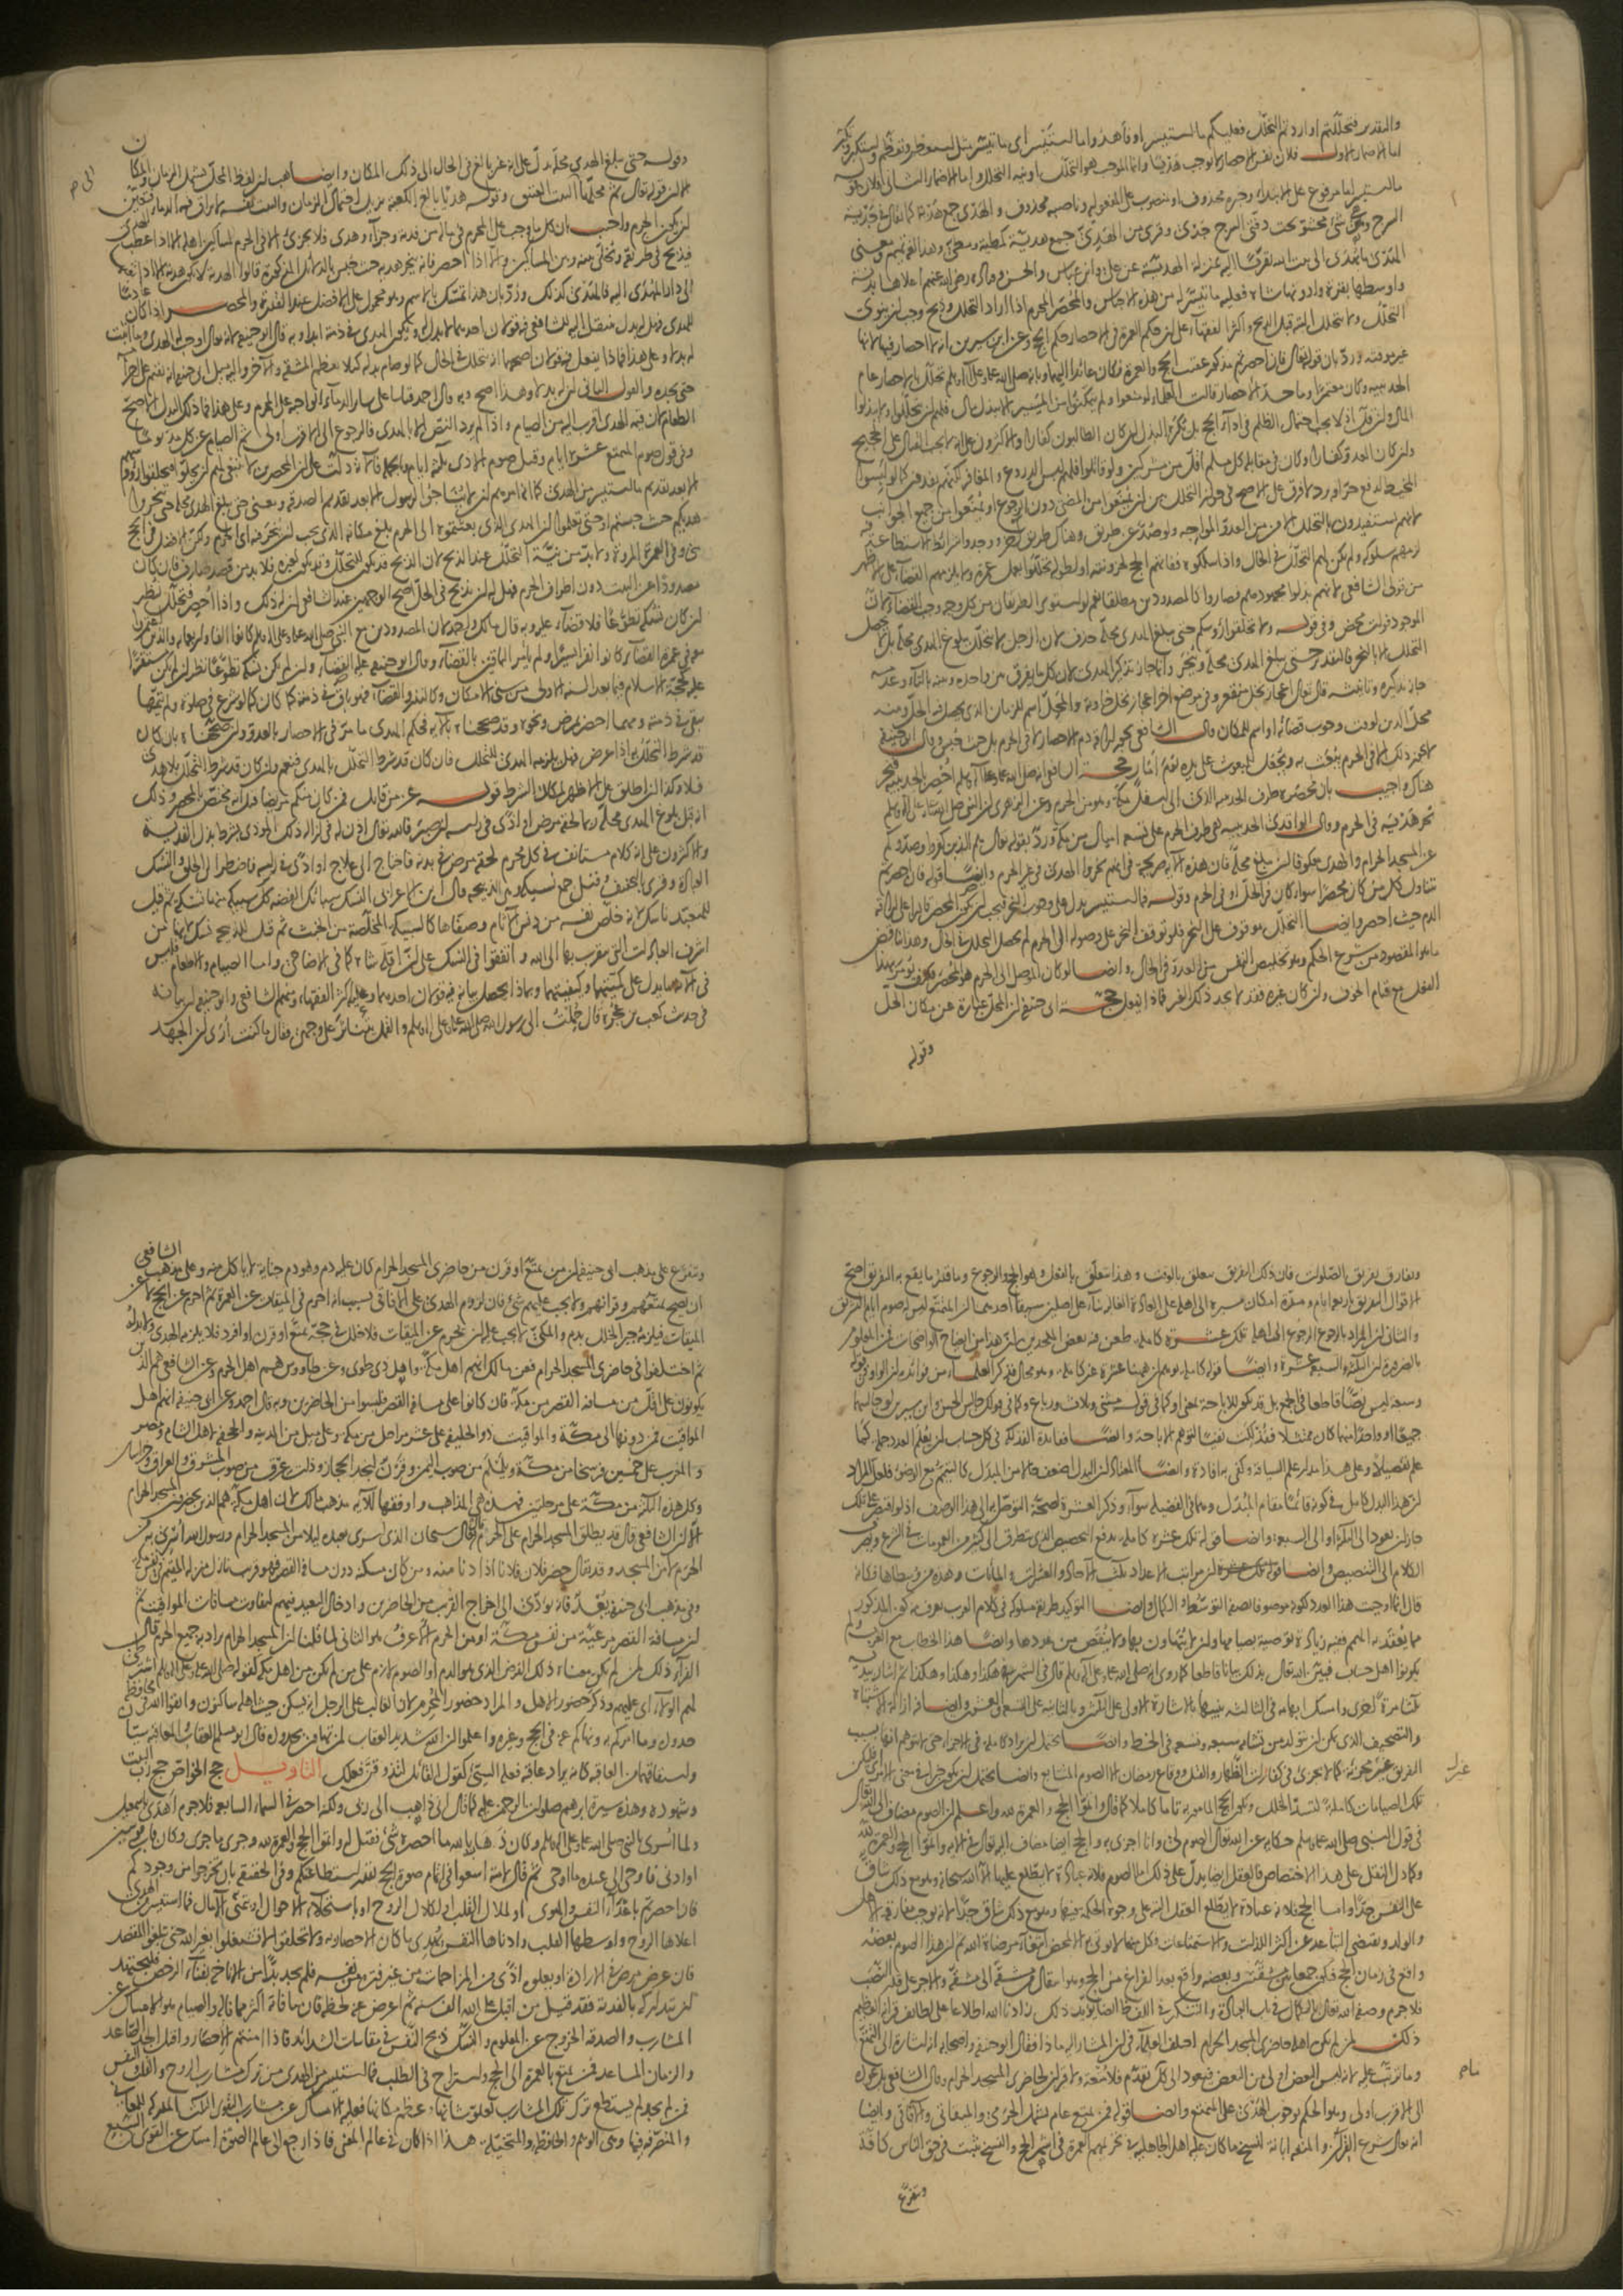 والتقدير فتحللتم او اردتم التحلل فعليكم ما استيسر او فأهدوا ما استيسر اى ما تيسر مثل استعظم وتعظم واستكبر وتكبر
اما الاحصار الاول فلان نفس الاحصار لا يوجب هديا وانما الموجب هو التحلل او نية التحلل واما الاحصار الثانى فلان
ما استيسر اما مرفوع على الابتداء وخبره محذوف او منصوب على المفعولية وناصبه محذوف والهدى جمع هدية كما يقال فى جدية
السرج وهى شئ محشو تحت دفتى السرج جدى وقرئ من الهدى جمع هدية كمطية ومطى وهذا
المهدى ما يهدى الى بيت الله تقربا اليه بمنزلة الهدية عن على وابن عباس والحسن وقتادة رضى الله عنهم اعلاها بدنة
واوسطها بقرة وادونها شاة فعليه ما تيسر له من هذه الاجناس والمحصر المحرم اذا اراد التحلل وذبح وجب ان ينوى
التحلل ولا يتحلل البتة قبل الذبح واكثر الفقهاء على ان حكم العمرة فى الاحصار حكم الحج وعن ابن سيرين انه لا احصار فيها لانها
غير موقتة ورد بان قوله تعالى فان احصرتم مذكور عقيب الحج والعمرة فكان عائدا اليهما وبانه صلى الله عليه وعلى آله وسلم تحلل بالاحصار عام
الحديبية وكان معتمرا وما حد الاحصار قالت العلماء لو منعوا ولم يتمكنوا من المسير الا ببذل مال فلهم ان يتحللوا ولا يبذلوا
المال وان قل اذ لا يجب احتمال الظلم فى اداء الحج بل يكره البذل ان كان الطالبون كفارا والاكثرون على انه لا يجب القتال على الحجيج
وان كان العدو كفارا وكان فى مقابلة كل مسلم اقل من مشركين ولو قاتلوا فلهم لبس الدروع والمغافر لكنهم يفدون كما لو لبسوا
المخيط لدفع حر او برد ولا فرق على الاصح فى جواز التحلل بين ان يمنعوا من المضى دون الرجوع او يمنعوا من جميع الجوانب
لانهم يستفيدون بالتحلل الامن من العدو المواجه ولو صد عن طريق وهناك طريق آخر ووجدوا شرائط الاستطاعة فيه
لزمهم سلوكه ولم يكن لهم التحلل فى الحال واذا سلكوه ففاتهم الحج لحزونته او لطوله تحللوا بعمل عمرة ولا يلزمهم القضاء على الاظهر
من قولى الشافعى لانهم بذلوا مجهودهم فصاروا كالمصدودين مطلقا نعم لو استوى الطريقان من كل وجه وجب القضاء لان
الموجود فوات محض وفى قوله ولا تحلقوا رؤسكم حتى يبلغ الهدى محله حذف لان الرجل لا يتحلل ببلوغ الهدى محله بل لا يحصل
التحلل الا بالنحر فالتقدير حتى يبلغ الهدى محله وينحر وانما جاز تذكير الهدى لان كل ما يفرق بين واحده وجمعه بالتاء وعدمه
جاز تذكيره وتأنيثه قال تعالى اعجاز نخل منقعر وفى موضع آخر اعجاز نخل خاوية والمحل اسم للزمان الذى يحصل فيه الحل ومنه
محل الدين لوقت وجوب قضائه او اسم للمكان قال الشافعى يجوز اراقة دم الاحصار لا فى الحرم بل حيث حبس وقال ابو حنيفة
لا يجوز ذلك الا فى الحرم يبعث به ويجعل للمبعوث على يده يوم امار حجة الشافعى انه صلى الله عليه وعلى آله وسلم احصر بالحديبية فنحر
هناك واجيب بان محصره طرف الحديبية الذى الى اسفل مكة وهو من الحرم وعن الزهرى ان النبى صلى الله عليه وعلى آله وسلم
نحر هديه فى الحرم وقال الواقدى الحديبية هى طرف الحرم على تسعة اميال من مكة ورد بقوله تعالى هم الذين كفروا وصدوكم
عن المسجد الحرام والهدى معكوفا ان يبلغ محله فان هذه الآية صريحة فى انهم نحروا الهدى فى غير الحرم وايضا قوله فان احصرتم
تناول كل من كان محصرا سواء كان فى الحل او فى الحرم وقوله فما استيسر يدل على وجوب النحر فيجب ان يكون المحصر قادرا على اراقة
الدم حيث احصر وايضا التحلل موقوف على النحر فلو توقف النحر على وصوله الى الحرم لم يحصل التحلل فى الحال وهذا يناقض
ما هو المقصود من شرع الحكم وهو تخليص النفس من العدو فى الحال وايضا لو كان الموصل الى الحرم هو المحصر فكيف يؤمر بهذا
الفعل مع قيام الخوف وان كان غيره فقد لا يجد ذلك الغير فماذا يفعل حجة ابى حنيفة ان المحل عبارة عن مكان الحل
وقوله
وقوله حتى يبلغ الهدى محله يدل على انه غير بالغ فى الحال الى ذلك المكان وايضا هب ان لفظ المحل يشتمل الزمان والمكان
الا ان قوله تعالى ثم محلها الى البيت العتيق وقوله هديا بالغ الكعبة يزيل احتمال الزمان والبيت نفسه لا يراق فيه الدماء فتعين
ان يكون الحرم واجيب بان كل ما وجب على المحرم فى ماله من فدية وجزاء وهدى فلا يجزئ الا فى الحرم لمساكين اهله الا اذا عطب الهدى
فيذبح فى طريقه ويخلى بينه وبين المساكين والا اذا احصر فانه ينحر هديه حيث حبس بالدلائل المذكورة قالوا الهدية لا تكون هدية الا اذا بعثه
الى دار المهدى اليه فالهدى كذلك ورد بان هذا تمسك بالاسم وهو محمول على الافضل عند القدرة والمحصر اذا كان عادما
للهدى فهل له بدل ينتقل اليه للشافعى فيه قولان احدهما لا بدل له ويكون الهدى فى ذمته ابدا وبه قال ابو حنيفة لانه تعالى اوجب الهدى وما اثبت
له بدلا وعلى هذا فماذا يفعل فيه قولان اصحهما انه يتحلل فى الحال كما لو صام بدله كيلا تعظم المشقة والآخر واليه ميل ابى حنيفة انه يقيم على احرامه
حتى يجده والقول الثانى ان له بدلا وهذا اصح وبه قال احمد قياسا على سائر الدماء الواجبة على المحرم وعلى هذا فما ذلك البدل الاصح
الطعام لان قيمة الهدى اقرب اليه من الصيام واذا لم يرد النص الا بالهدى فالرجوع الى الاقرب اولى ثم الصيام عن كل مد يوما
وفى قول صوم المتمتع عشرة ايام وقيل صوم الاذى ثلاثة ايام وبالجملة فالآية دلت على ان المحصرين لا ينبغى لهم ان يحلوا فيحلقوا رؤسهم
الا بعد تقديم ما استيسر من الهدى كما انه امرهم ان لا يناجوا الرسول الا بعد تقديم الصدقة ومعنى حتى يبلغ الهدى محله حتى تنحروا
هديكم حيث حبستم او حتى تعلموا ان الهدى الذى بعثتموه الى الحرم بلغ مكانه الذى يجب ان ينحر فيه
منى وفى العمرة المروة ولا بد من نية التحلل عند الذبح لان الذبح قد يكون للتحلل وقد يكون لغيره فلا بد من قصد صارف فان كان
مصدودا عن البيت دون اطراف الحرم فهل له ان يذبح فى الحل اصح الوجهين عند الشافعى ان له ذلك واذا احصر فتحلل نظر
ان كان نسكه تطوعا فلا قضاء عليه وبه قال مالك واحمد لان المصدودين مع النبى صلى الله عليه وعلى آله وسلم كانوا الفا واربعمائة والذين اعتمروا
معه فى عمرة القضاء كانوا نفرا يسيرا ولم يأمر الباقين بالقضاء وقال ابو حنيفة عليه القضاء وان لم يكن نسكه تطوعا نظر ان لم يكن مستقرا
عليه كحجة الاسلام فيما بعد السنة الاولى من سنى الامكان وكالنذر والقضاء فهو باق فى ذمته كما كان كما لو شرع فى صلاة ولم يتمها
بقى فى ذمته ومهما احصر بمرض ونحوه وقد صححنا فحكم الهدى ما مر فى الاحصار بالعدو وان صححناه بان كان
قد شرط التحلل به اذا مرض فهل يلزمه الهدى للتحلل فان كان قد شرط التحلل بالهدى فنعم وان كان قد شرط التحلل بلا هدى
فلا وكذا ان اطلق على الاظهر لمكان الشرط قوله عز من قائل فمن كان منكم مريضا قيل انه مختص بالمحصر وذلك
انه قبل بلوغ الهدى محله ربما لحقه مرض او اذى فى رأسه ان صبر فالله تعالى اذن له فى ازالة ذلك الموذى بشرط بذل الفدية
والاكثرون على انه كلام مستأنف فى كل محرم لحقه مرض فى بدنه فاحتاج الى علاج او اذى فى رأسه فاضطر الى الحلق والنسك
العبادة وقرئ بالتخفيف وقيل جمع نسيكة وهى الذبيحة قال ابن الاعرابى النسك سبائك الفضة كل سبيكة منها نسيكة ثم قيل
للمتعبد ناسك لانه خلص نفسه من دنس الآثام وصفاها كالسبيكة المخلصة من الخبث ثم قيل للذبيحة نسك لانها من
اشرف العبادات التى يتقرب بها الى الله واتفقوا فى النسك على ان اقله شاة كما فى الاضاحى واما الصيام والاطعام فليس
فى الآية ما يدل على كميتهما وكيفيتهما وبماذا يحصل بيانه فيه قولان احدهما وعليه اكثر الفقهاء ومنهم الشافعى وابو حنيفة ان بيانه
فى حديث كعب بن عجرة قال حملت الى رسول الله صلى الله عليه وعلى آله وسلم والقمل يتناثر على وجهى فقال ما كنت ارى ان الجهد
ويفارق تفريق الصلوات فان ذلك التفريق متعلق بالوقت وهذا متعلق بالفعل وهو الحج والرجوع وما قدر ما يقع به التفريق اصح
الاقوال التفريق باربعة ايام ومدة امكان مسيره الى اهله على العادة الغالبة بناء على اصلين سبقا احدهما ان المتمتع ليس له صوم ايام التشريق
والثانى ان المراد بالرجوع الرجوع الى اهله تلك عشرة كاملة طعن فيه بعض الملحدين بان هذا من ايضاح الواضحات فمن المعلوم
بالضرورة ان الثلاثة والسبعة عشرة وايضا قوله كاملة يوهم ان ههنا عشرة غير كاملة وهو محال فذكر العلماء من فوائده ان الواو فى قوله
وسبعة ليس نصا قاطعا فى الجمع بل قد يكون للاباحة بمعنى او كما فى قوله مثنى وثلاث ورباع وكما فى قولك جالس الحسن وابن سيرين لو جالسهما
جميعا او واحدا منهما كان ممتثلا ففذلكت نفيا لتوهم الاباحة وايضا ففائدة الفذلكة فى كل حساب ان يعلم العدد جملة كما
علم تفصيلا وعلى هذا مدار علم السياقة وكفى به افادة وايضا المعتاد ان البدل اضعف حالا من المبدل كالتيمم مع الوضوء فلعل المراد
ان هذا البدل كامل فى كونه قائما مقام المبدل وهما فى الفضيلة سواء وذكر العشرة لصحة التوصل به الى هذا الوصف اذ لو اقتصر على تلك
جاز ان يعود الى الثلاثة او الى السبعة وايضا قوله تلك عشرة كاملة يدفع التخصيص الذى يتطرق الى كثير من العمومات فى الشرع ويصرف
الكلام الى التنصيص وايضا قوله تلك عشرة ان مراتب الاعداد ثلاث الآحاد والعشرات والمئات وهذه من وسطاها فكأنه
قال انما اوجبت هذا العدد لكونه موصوفا بصفة التوسط والكمال وايضا التوكيد طريقة مسلوكة فى كلام العرب يعرف به كون المذكور
مما يعقد به الهمم ففيه زيادة توصية بصيامها وان لا يتهاون بها ولا ينقص من عددها وايضا هذا الخطاب مع العرب ولم
يكونوا اهل حساب فبين الله تعالى بذلك بيانا قاطعا كما روى انه صلى الله عليه وعلى آله وسلم قال فى الشهر هكذا وهكذا وهكذا ثم اشار بيديه
ثلثا مرة اخرى وامسك ابهامه فى الثالثة تنبيها بالاشارة الاولى على الثلثين وبالثانية على التسعة والعشرين وايضا فيه ازالة الاشتباه
والتصحيف الذى يمكن ان يتولد من تشابه سبعة وتسعة فى الخط وايضا يحتمل ان يراد كاملة فى الاجزاء حتى لا يتوهم انها بسبب
التفريق غير مجزئة كما لا يجزئ فى كفارات الظهار والقتل ووقاع رمضان الا الصوم المتتابع وايضا يحتمل ان يكون خبرا فى معنى الامر اى فلتكن
تلك الصيامات كاملة لتسد الخلل ويكون الحج المأمور به تاما كاملا كما قال واتموا الحج والعمرة لله واعلم ان الصوم مضاف الى الله تعالى
فى قول النبى صلى الله عليه وسلم حكاية عن الله تعالى الصوم لى وانا اجزى به والحج ايضا مضاف اليه تعالى فى الآية واتموا الحج والعمرة لله
وكما دل النقل على هذا الاختصاص فالعقل ايضا يدل على ذلك اما الصوم فلانه عبادة لا يطلع عليها الا الله سبحانه وهو مع ذلك شاق
على النفس جدا واما الحج فلانه عبادة لا يطلع العقل البتة على وجوه الحكمة فيها وهو مع ذلك شاق جدا لانه يوجب مفارقة الاهل
والولد ويقتضى التباعد عن اكثر اللذات والاستمتاعات وكل منهما لا يؤتى به الا لمحض ابتغاء مرضاة الله ثم ان هذا الصوم بعضه
واقع فى زمان الحج فيكون جمعا بين مشقتين وبعضه واقع بعد الفراغ من الحج وهو انتقال من مشقة الى مشقة والاجر على قدر النصب
فلا جرم وصف الله تعالى بالكمال فى باب العبادة والتنكير فى اللفظ ايضا يؤيد ذلك زادنا الله اطلاعا على لطائف قرآنه العظيم
ذلك لمن لم يكن اهله حاضرى المسجد الحرام اختلف العلماء فى ان المشار اليه ما ذا فقال ابو حنيفة واصحابه انه اشارة الى التمتع
وما ترتب عليه لانه ليس البعض اولى من البعض فيعود الى كل ما تقدم فلا متعة ولا قران لحاضرى المسجد الحرام وقال الشافعى بل عوده
الى الاقرب اولى وهو الحكم بوجوب الهدى على المتمتع وايضا قوله فمن تمتع عام يشمل الحرمى والميقاتى والآفاقى وايضا
انه تعالى شرع القران والمتعة ابانة لنسخ ما كان عليه اهل الجاهلية فى تحريمهم العمرة فى اشهر الحج والنسخ يثبت فى حق الناس كافة
ويتفرع
ويتفرع على مذهب ابى حنيفة ان من تمتع او قرن من حاضرى المسجد الحرام كان عليه دم وهو دم جناية لا ياكل منه وعلى مذهب الشافعى
انه يصح تمتعهم وقرانهم ولا يجب عليهم شئ فان لزوم الهدى على الآفاقى بسبب انه احرم فى الميقات عن العمرة ثم احرم عن الحج لا عن
الميقات فيلزمه جبر الخلل بدم والمكى لا يجب عليه ان يحرم عن الميقات فلا خلل فى حجه تمتع او قرن او افرد فلا يلزمه الهدى ولا بدله
ثم اختلفوا فى حاضرى المسجد الحرام فعن مالك انهم اهل مكة واهل ذى طوى وعن طاووس هم اهل الحرم وعن الشافعى هم الذين
يكونون على اقل من مسافة القصر من مكة فان كانوا على مسافة القصر فليسوا من الحاضرين وبه قال احمد وعن ابى حنيفة انهم اهل
المواقيت فمن دونها الى مكة والمواقيت ذو الحليفة على عشر مراحل من مكة وعلى ميل من المدينة والجحفة لاهل الشام ومصر
والمغرب على خمسين فرسخا من مكة ويلملم من صوب اليمن وقرن لنجد الحجاز وذات عرق من صوب المشرق والعراق وخراسان
وكل هذه الثلاثة من مكة على مرحلتين فهذه هى المذاهب واوفقها للآية مذهب مالك لان اهل مكة هم الذين يحضرون المسجد الحرام
الا ان الشافعى قال قد يطلق المسجد الحرام على الحرم قال تعالى سبحان الذى اسرى بعبده ليلا من المسجد الحرام ورسول الله اسرى به من
الحرم لا من المسجد وقد يقال حضر فلان فلانا اذا دنا منه ومن كان مسكنه دون مسافة القصر فهو قريب نازل منزلة المقيم فى نفس مكة
وفى مذهب ابى حنيفة بعد فانه يؤدى الى اخراج القريب من الحاضرين وادخال البعيد فيهم لتفاوت مسافات المواقيت ثم
ان مسافة القصر مرعية من نفس مكة او من الحرم الاعرف هو الثانى لما قلنا ان المسجد الحرام يراد به جميع الحرم قال
الفراء ذلك لمن لم يكن معناه ذلك الفرض الذى هو الدم او الصوم لازم على من لم يكن من اهل مكة كقوله صلى الله عليه وعلى آله وسلم اشترطى
لهم الولاء اى عليهم وذكر حضور الاهل والمراد حضور المحرم لان الغالب على الرجل انه يسكن حيث اهله ساكنون واتقوا الله فى محافظة
حدوده وما امركم به ونهاكم عنه فى الحج وغيره واعلموا ان الله شديد العقاب لمن تهاون بحدوده قال ابو مسلم العقاب والمعاقبة سيان
واشتقاقهما من العاقبة كانه يراد عاقبة فعله السيئ كقول القائل لتذوقن فعلك التأويل حج الخواص حج رب البيت
وشهوده وهذه سيرة ابرهيم صلوات الرحمن عليه كما قال انى ذاهب الى ربى ولكنه احصر فى السماء السابعة فلا جرم اهدى باسمعيل
ولما اسرى بالنبى صلى الله عليه وعلى آله وسلم وكان ذهابه بالله ما احصره شئ فقيل له واتموا الحج والعمرة لله وجرى ما جرى وكان قاب قوسين
او ادنى فاوحى الى عبده ما اوحى ثم قال لامته اسعوا فى اتمام صورة الحج بقدر استطاعتكم وفى الحقيقة بان تخرجوا من وجودكم
فان احصرتم باعداء النفس والهوى او لملال القلب او لكلال الروح او باستحلاء الاحوال او تمنى الآمال فما استيسر من الهدى
اعلاها الروح واوسطها القلب وادناها النفس يهدى ما كان الاحصار به ولا تحلقوا لا تشتغلوا بغير الله حتى تبلغوا المقصد
فان عرض مرض فى الارادة او بعلوه اذى من المزاحمات من غير فترة من نفسه فلم يجد بدا من الاناخة بفناء الرخص فليجتهد
ان يتداركه بالفدية فقد قيل من اقبل على الله الف سنة ثم اعرض عنه لحظة فان ما فاته اكثر مما ناله والصيام هو الامساك عن
المشارب والصدقة الخروج عن المعلوم والنسك ذبح النفس فى مقاسات الشدائد فاذا امنتم الاحصار واقبل الجد الصاعد
والزمان المساعد فمن تمتع بالعمرة الى الحج واستراح فى الطلب فما استيسر من الهدى من ترك مشارب الروح والقلب والنفس
فمن لم يجد لم يستطع ترك تلك المشارب لعلو شانها وعظم مكانها فعليه الامساك عن مشارب القوى الثلاثة المدركة للمعانى
والمتصرفة فيها وهى الوهم والحافظة والمتخيلة هذا اذا كان فى عالم المعنى فاذا رجع الى عالم الصورة امسك عن القوى السبع